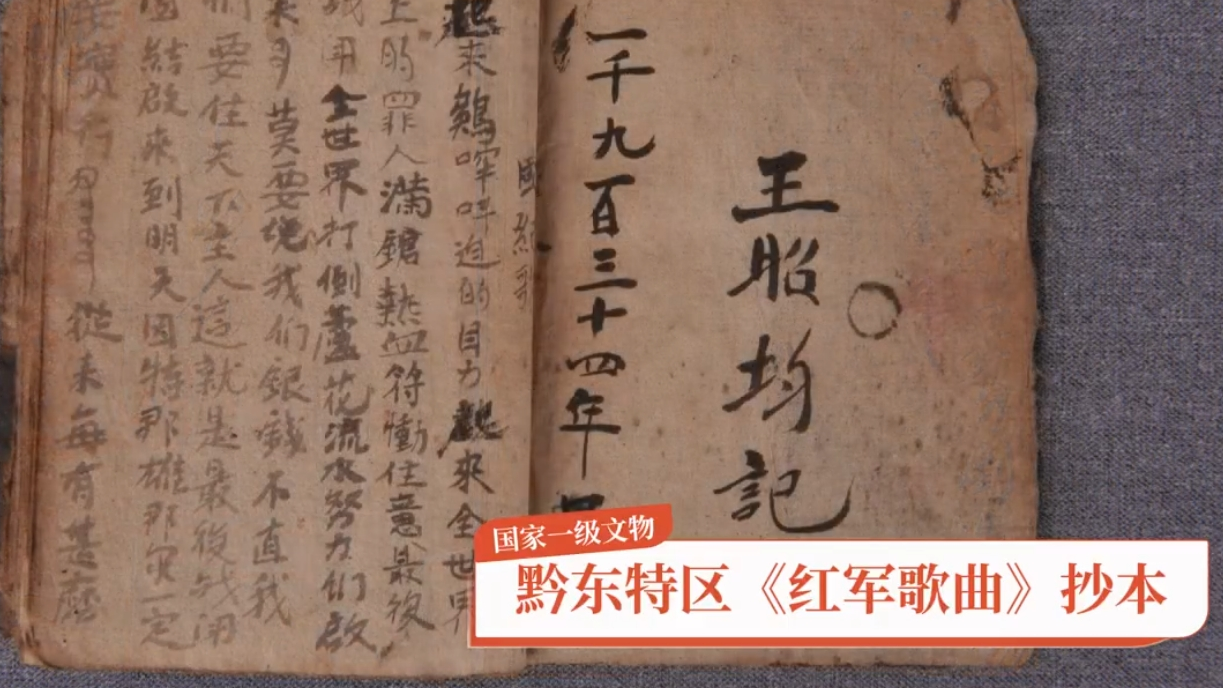 王昭均記
一千九百三十四年
國際哥
起來鷄啼呼迫的目力 起來全世界
上的罪人滿鎗熱血符慟住意最後
戓用全世界打倒蘆花流水努力們啟
来了莫要说我们銀錢不直我
們要住天下主人這就是最後戓用
團結啟來到明天因特那雄那定一定
從来每有甚麽
国家一级文物
黔东特区《红军歌曲》抄本